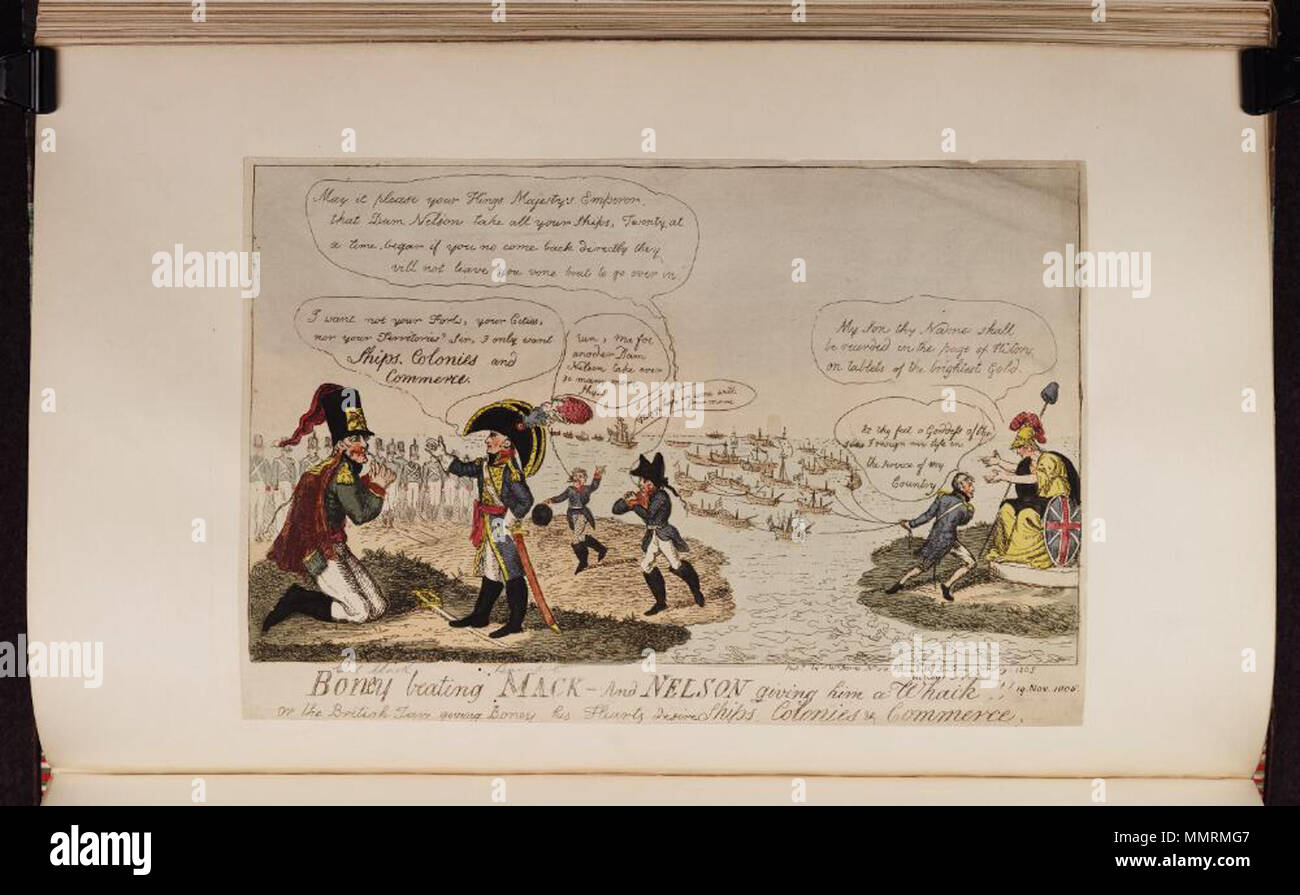 May it please your Kings Majesty's Emperor.
that Dam Nelson take all your Ships, Twenty at
a time, begar if you no come back directly they
vill not leave you vone boat to go over in
I want not your Forts, your Cities,
nor your Territories! Sir, I only want
Ships, Colonies and
Commerce.
Run, for
anoder Dam
Nelson take
so many more
Ships
My Son thy Name shall
be recorded in the page of History
on tablets of the brightest Gold.
to thy feet o Goddess of the
seas I resign my life in
the service of my
Country
1805
Boney beating MACK - And NELSON giving him a Whack !! 19. Nov. 1805.
or the British Tars giving Boney his Hearts desire Ships, Colonies & Commerce.
a
alamy
alamy
Image ID: MMRMG7
www.alamy.com